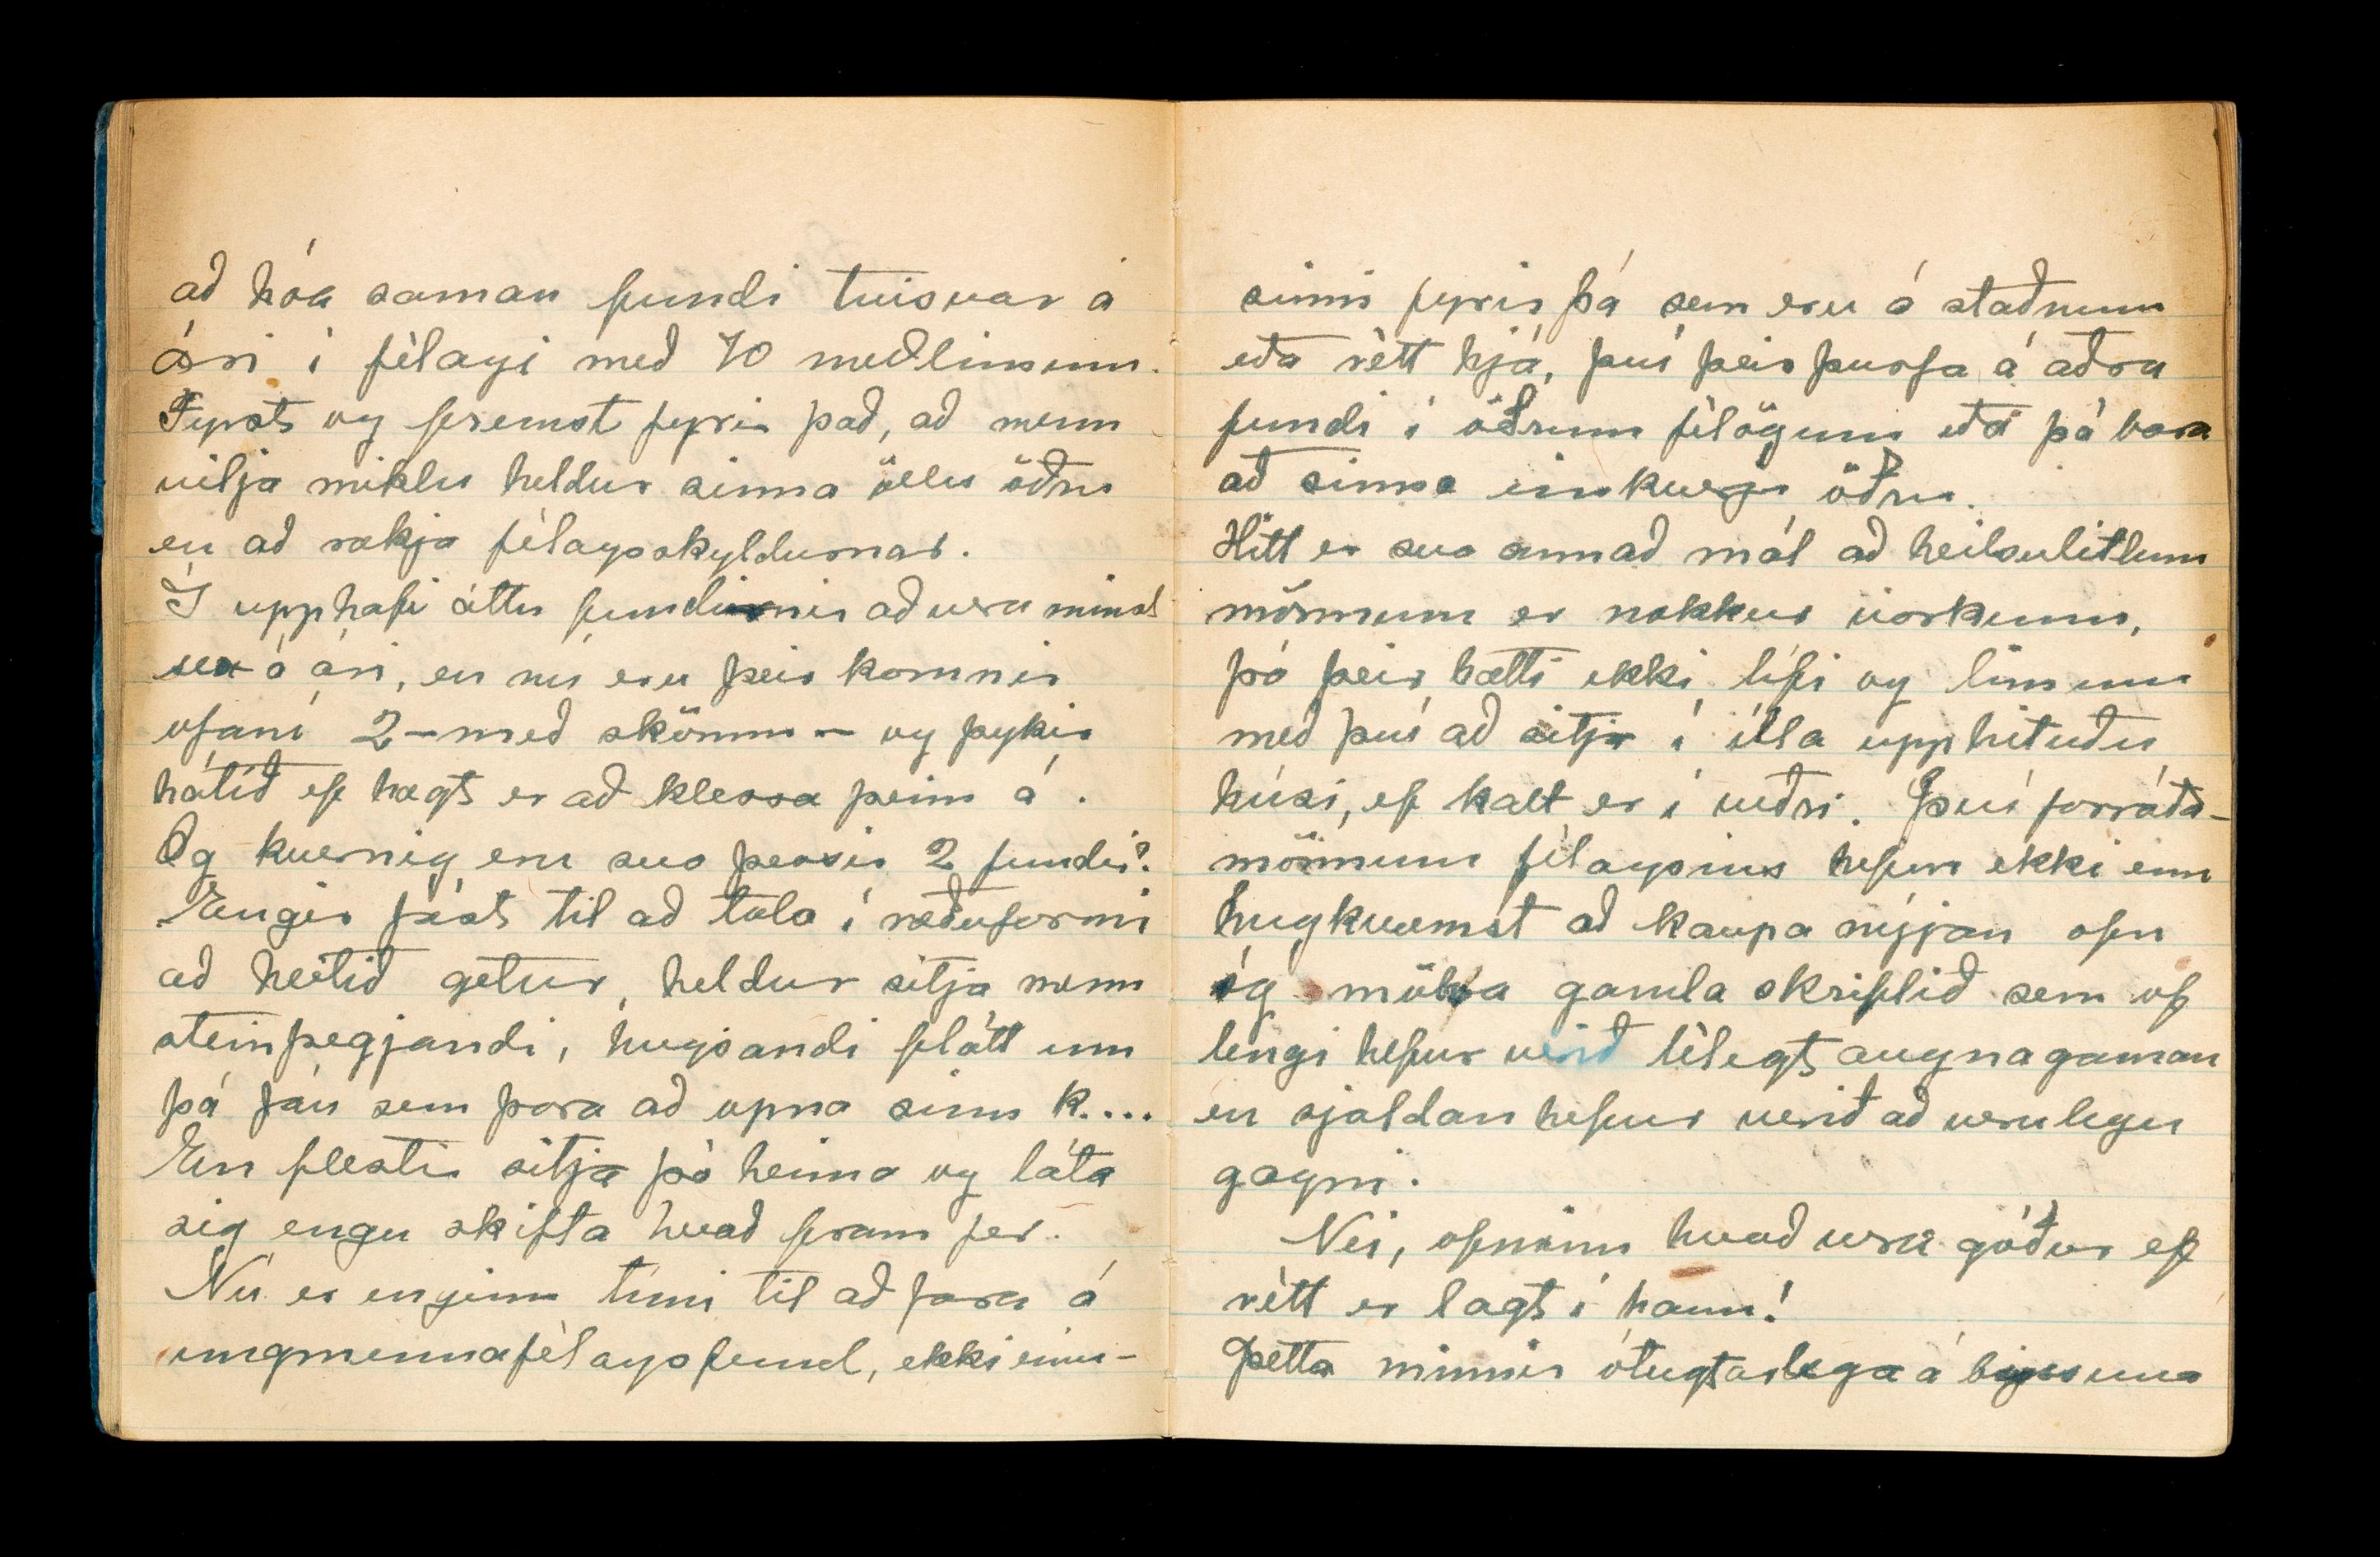 að hóa saman fundi tvisvar á
ári í félagi með 70 meðlimum.
Fyrst og fremst fyrir það, að menn
vilja miklu heldur sinna öllu öðru
en að rækja félagsskyldurnar.
Í upphafi áttu fundirnir að vera minst
sex á ári, en nú eru þeir komnir
ofaní 2 – með skömm – og þykir
hátíð ef hægt er að klessa þeim á.
Og kvernig eru svo þessir 2 fundir?
Engir fást til að tala í ræðuformi
að heitið getur, heldur sitja menn
steinþegjandi, hugsandi flátt um
þá fáu sem þora að opna sinn k....
En flestir sitja þó heima og láta
sig engu skifta hvað fram fer.
Nú er enginn tími til að fara á
ungmennafélagsfund, ekki einu-
sinni fyrir þá sem eru á staðnum
eða rétt hjá, því þeir þurfa á aðra
fundi í öðrum félögum eða þá bara
að sinna einkverju öðru.
Hitt er svo annað mál að heilsulitlum
mönnum er nokkur vorkunn,
þó þeir hætti ekki lífi og limum
með því að sitja í illa upphituðu
húsi, ef kalt er í veðri. Því forráða-
mönnum félagsins hefur ekki enn
hugkvæmst að kaupa nýjan ofn
og mölva gamla skriflið sem of
lengi hefur verið lélegt augnagaman
en sjaldan hefur verið að verulegu
gagni.
Nei, ofninn hvað vera góður ef
rétt er lagt í hann!
Þetta minnir ótugtarlega á byssuna